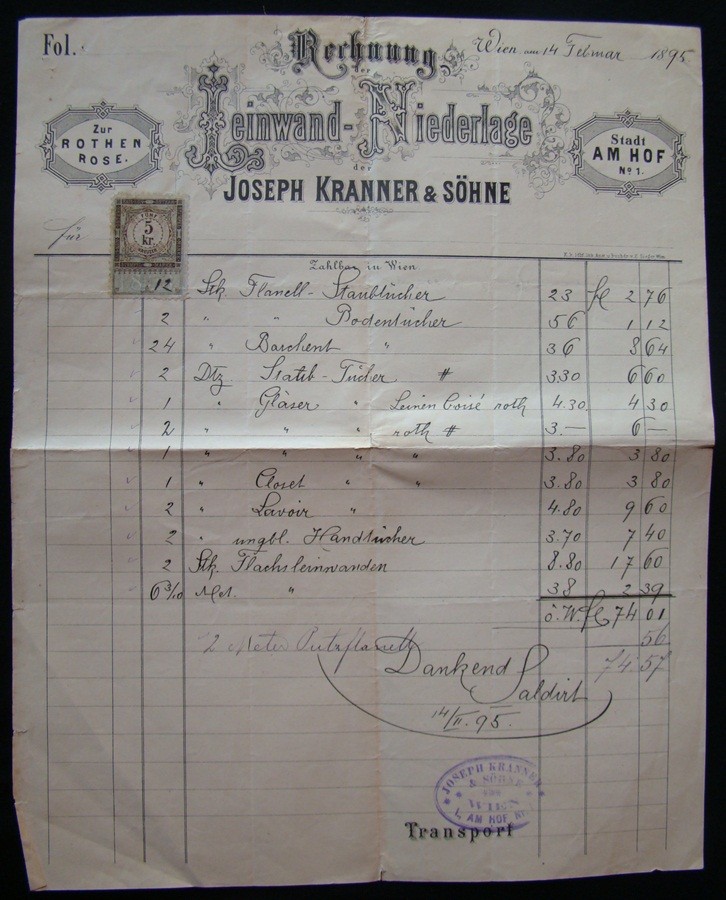 Fol.
Rechnung
Wien, am 14 Februar 1895
der
Leinwand-Niederlage
Zur
ROTHEN
ROSE.
Stadt
AM HOF
No 1.
der
JOSEPH KRANNER & SÖHNE
FÜNF
5
kr.
für
Zahlbar in Wien
12 Stk. Flanell-Staubtücher 23 fl 2 76
2 " " Bodentücher 56 1 12
24 " Barchent " 36 8 64
2 Dtz Staub-Tücher # 3.30 6 60
1 " Gläser " Leinen roth 4.30 4 30
2 " " " roth # 3.— 6 —
1 " " " " 3.80 3 80
1 " Closet " " 3.80 3 80
2 " Lavoir " 4.80 9 60
2 " ungbl. Handtücher 3.70 7 40
2 Stk. Flachsleinwanden 8.80 17 60
6 3/10 Met. " 38 2 39
ö. W. fl 74 01
2 Meter Putzflanell 56
74.57
Dankend
Saldirt
14/II. 95.
JOSEPH KRANNER
& SÖHNE
WIEN
I. AM HOF
Transport